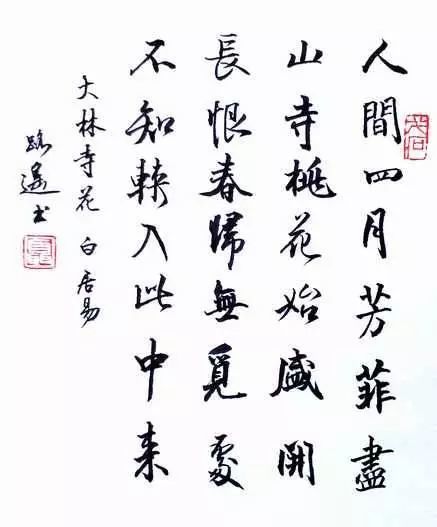 人間四月芳菲盡
山寺桃花始盛開
長恨春歸無覓處
不知轉入此中来
大林寺花 白居易
路遥书